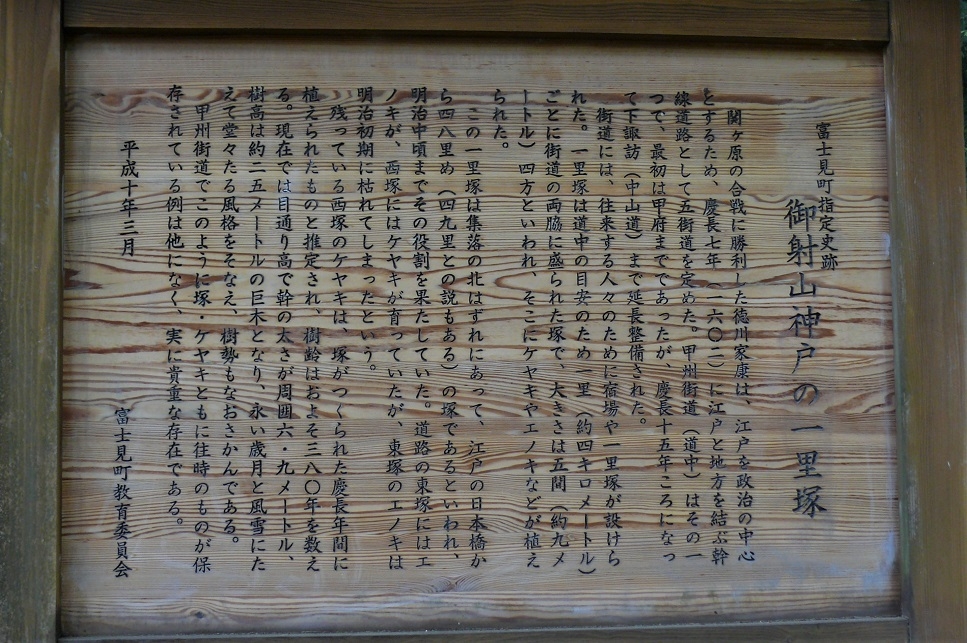 富士見町指定史跡
御射山神戸の一里塚
関ヶ原の合戦に勝利した徳川家康は、江戸を政治の中心
とするため、慶長七年（一六〇二）に江戸と地方を結ぶ幹
線道路として五街道を定めた。甲州街道（道中）はその一
つで、最初は甲府までであったが、慶長十五年ころになっ
て下諏訪（中山道）まで延長整備された。
街道には、往来する人々のために宿場や一里塚が設けら
れた。一里塚は道中の目安のため一里（約四キロメートル）
ごとに街道の両脇に盛られた塚で、大きさは五間（約九メ
ートル）四方といわれ、そこにケヤキやエノキなどが植え
られた。
この一里塚は集落の北はずれにあって、江戸の日本橋か
ら四八里め（四九里との説もある）の塚であるといわれ、
明治中頃までその役割を果たしていた。道路の東塚にはエ
ノキが、西塚にはケヤキが育っていたが、東塚のエノキは
明治初期に枯れてしまったという。
残っている西塚のケヤキは、塚がつくられた慶長年間に
植えられたものと推定され、樹齢はおよそ三八〇年を数え
る。現在では目通り高で幹の太さが周囲六・九メートル、
樹高は約二五メートルの巨木となり、永い歳月と風雪にた
えて堂々たる風格をそなえ、樹勢もなおさかんである。
甲州街道でこのように塚・ケヤキともに往時のものが保
存されている例は他になく、実に貴重な存在である。
平成十年三月
富士見町教育委員会